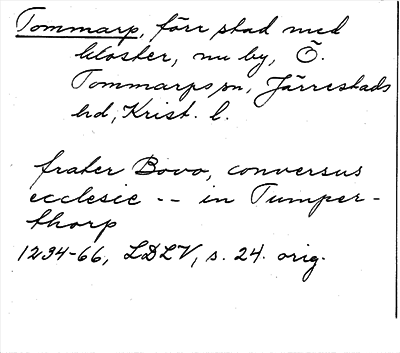 Tommarp, förr stad med
kloster, nu by, Ö.
Tommarps sn, Järrestads
hd, Krist. l.
frater Bovo, conversus
ecclesie -- in Tumper-
thorp
1294-66, LDLV, s. 24. orig.